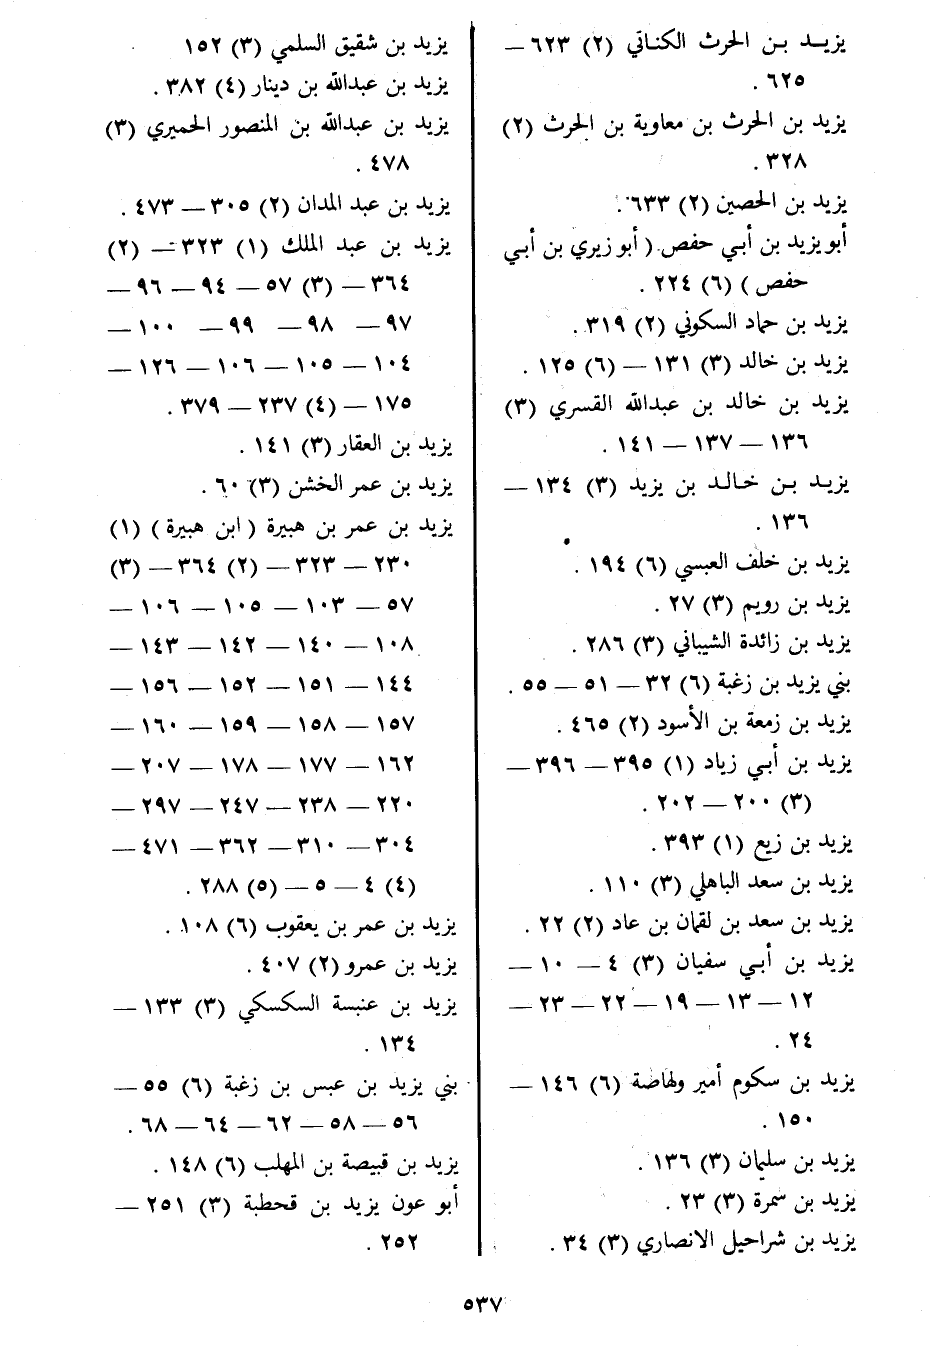 يزيد بن الحرث الكناني (٢) ٦٢٣ —
٦٢٥ .
يزيد بن الحرث بن معاوية بن الحرث (٢)
٣٢٨ .
يزيد بن الحصين (٢) ٦٣٣ .
أبو يزيد بن أبي حفص ( أبو زيري بن أبي
حفص ) (٦) ٢٢٤ .
يزيد بن حماد السكوني (٢) ٣١٩ .
يزيد بن خالد (٣) ١٣١ — (٦) ١٢٥ .
يزيد بن خالد بن عبدالله القسري (٣)
١٣٦ — ١٣٧ — ١٤١ .
يزيد بن خالد بن يزيد (٣) ١٣٤ —
١٣٦ .
يزيد بن خلف العبسي (٦) ١٩٤ .
يزيد بن رويم (٣) ٢٧ .
يزيد بن زائدة الشيباني (٣) ٢٨٦ .
بني يزيد بن زغبة (٦) ٣٢ — ٥١ — ٥٥ .
يزيد بن زمعة بن الأسود (٢) ٤٦٥ .
يزيد بن أبي زياد (١) ٣٩٥ — ٣٩٦ —
(٣) ٢٠٠ — ٢٠٢ .
يزيد بن زيع (١) ٣٩٣ .
يزيد بن سعد الباهلي (٣) ١١٠ .
يزيد بن سعد بن لقمان بن عاد (٢) ٢٢ .
يزيد بن أبي سفيان (٣) ٤ — ١٠ —
١٢ — ١٣ — ١٩ — ٢٢ — ٢٣ —
٢٤ .
يزيد بن سكوم أمير ولهاصة (٦) ١٤٦ —
١٥٠ .
يزيد بن سليمان (٣) ١٣٦ .
يزيد بن سمرة (٣) ٢٣ .
يزيد بن شراحيل الانصاري (٣) ٣٤ .
يزيد بن شقيق السلمي (٣) ١٥٢
يزيد بن عبدالله بن دينار (٤) ٣٨٢ .
يزيد بن عبدالله بن المنصور الحميري (٣)
٤٧٨ .
يزيد بن عبد المدان (٢) ٣٠٥ — ٤٧٣ .
يزيد بن عبد الملك (١) ٣٢٣ — (٢)
٣٦٤ — (٣) ٥٧ — ٩٤ — ٩٦ —
٩٧ — ٩٨ — ٩٩ — ١٠٠ —
١٠٤ — ١٠٥ — ١٠٦ — ١٢٦ —
١٧٥ — (٤) ٢٣٧ — ٣٧٩ .
يزيد بن العقار (٣) ١٤١ .
يزيد بن عمر الخشن (٣) ٦٠ .
يزيد بن عمر بن هبيرة ( ابن هبيرة ) (١)
٢٣٠ — ٣٢٣ — (٢) ٣٦٤ — (٣)
٥٧ — ١٠٣ — ١٠٥ — ١٠٦ —
١٠٨ — ١٤٠ — ١٤٢ — ١٤٣ —
١٤٤ — ١٥١ — ١٥٢ — ١٥٦ —
١٥٧ — ١٥٨ — ١٥٩ — ١٦٠ —
١٦٢ — ١٧٧ — ١٧٨ — ٢٠٧ —
٢٢٠ — ٢٣٨ — ٢٤٧ — ٢٩٧ —
٣٠٤ — ٣١٠ — ٣٦٢ — ٤٧١ —
(٤) ٤ — ٥ — (٥) ٢٨٨ .
يزيد بن عمر بن يعقوب (٦) ١٠٨ .
يزيد بن عمرو (٢) ٤٠٧ .
يزيد بن عنبسة السكسكي (٣) ١٣٣ —
١٣٤ .
بني يزيد بن عبس بن زغبة (٦) ٥٥ —
٥٦ — ٥٨ — ٦٢ — ٦٤ — ٦٨ .
يزيد بن قبيصة بن المهلب (٦) ١٤٨ .
أبو عون يزيد بن قحطبة (٣) ٢٥١ —
٢٥٢ .
٥٣٧